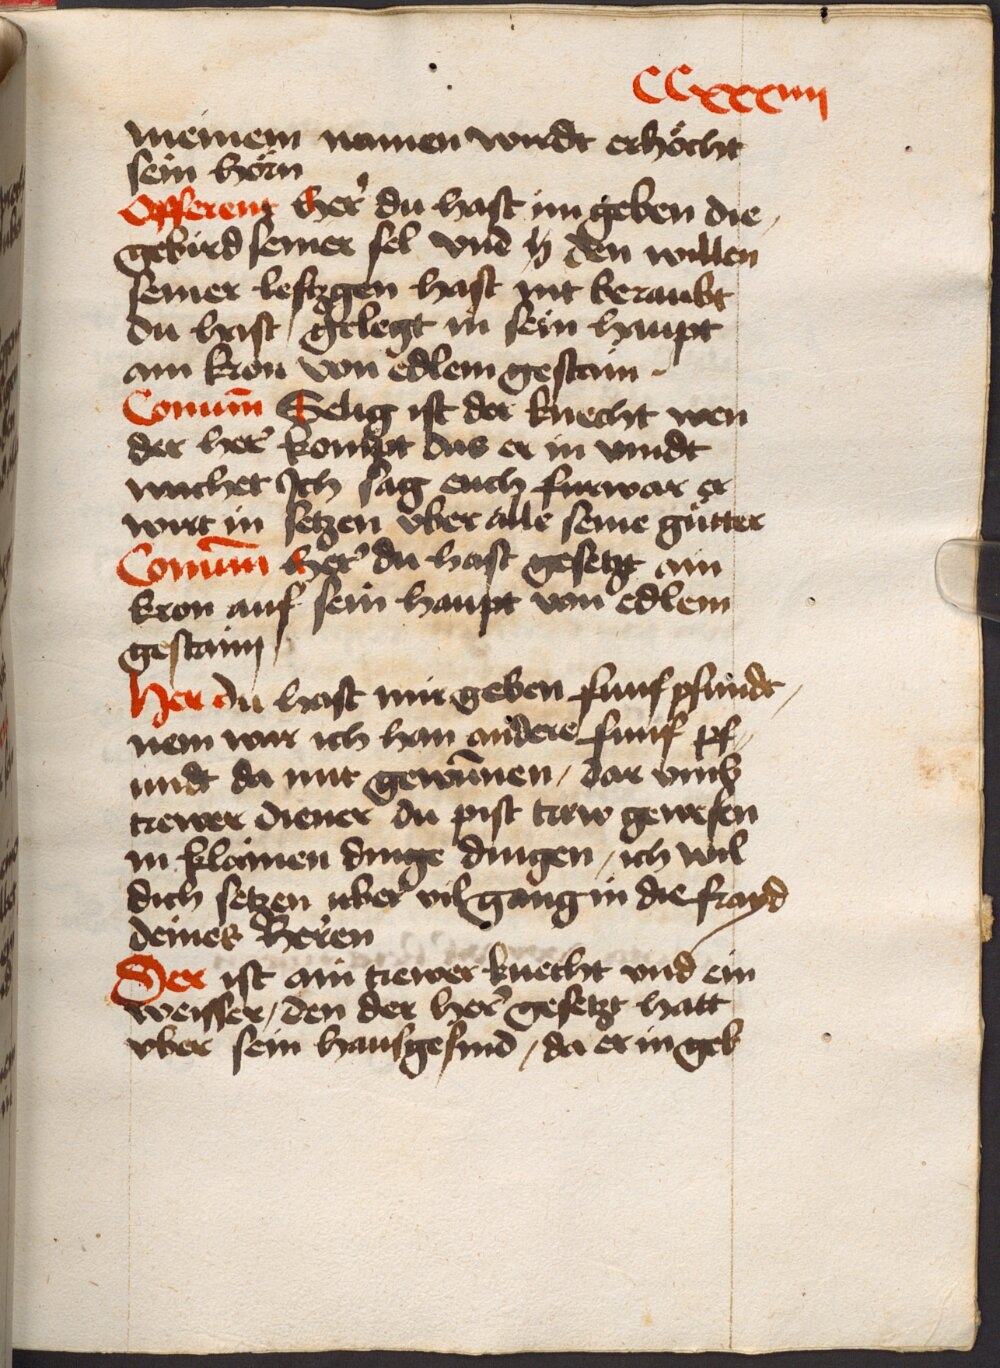 CCxxxiiii
meinem namen wirdt erhöcht
sein hörn
Offerent her du hast im geben die
gebird seiner sel vnd den willen
seiner leftzgen hast nit beraubt
du hast gelegt in sein haupt
ain kron von edlem gestain.
Comum̄ Selig ist der knecht wen
der her kompt das er in vindt
wachet Ich sag euch furwar er
wirt in setzen vber alle seine gütter
Comum̄ her du hast gesetzt ain
kron auf sein haupt von edlem
gestain
Her du hast mir geben funf pfundt /
nem war ich han andere funf pf
undt da mit gewūnen / dar vmb
trewer diener du pist trew gewesen
in klainen dinge dingen / ich wil
dich setzen uber vil gang in die frayd
deines heren
Der ist ain trewer knecht vnd ein
weisser / den der her gesetzt hatt
vber sein hausgesind / da er in geb